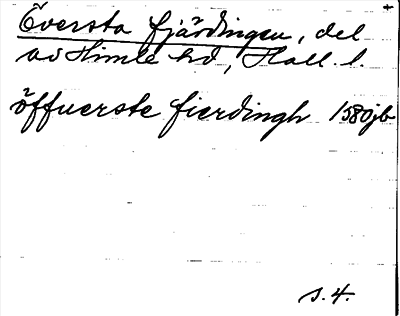 Översta fjärdingen, del
av Himle hd, Hall. l.
öffuerste fierdingh 1580 jb
s. 4.